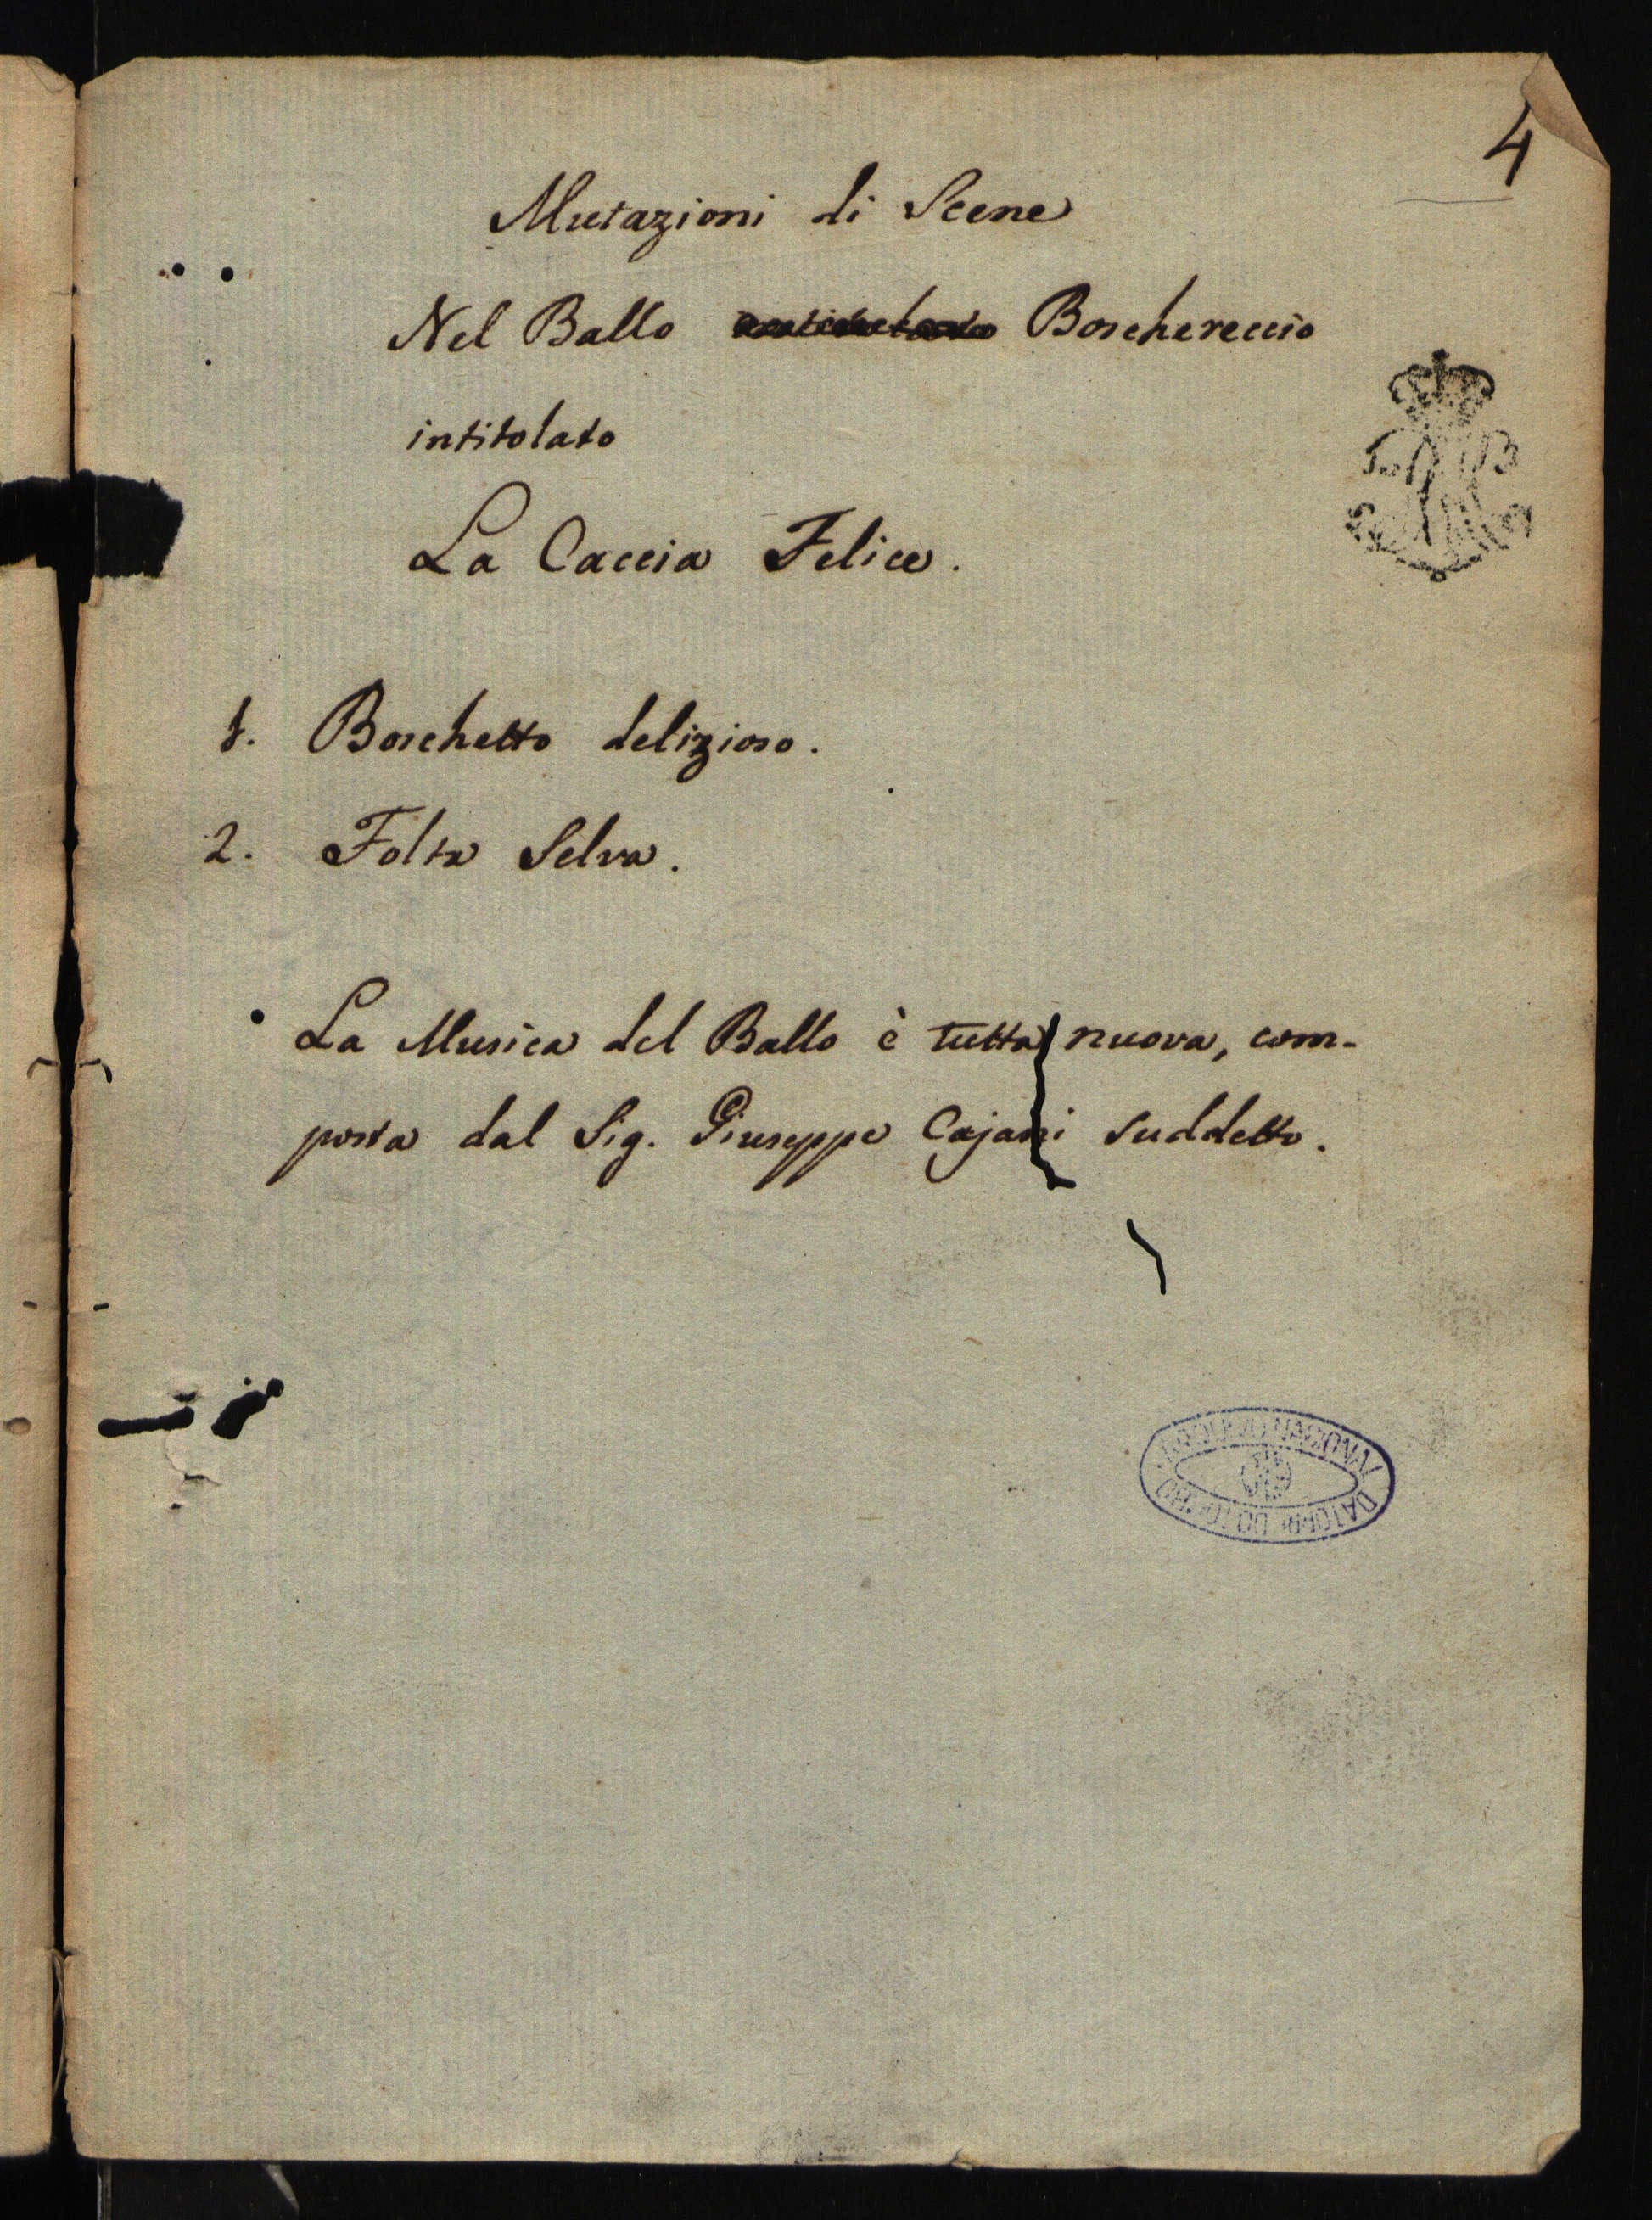 4
Mutazioni di Scene
Nel Ballo Boschereccio
intitolato
La Caccia Felice.
1. Boschetto delizioso.
2. Folta Selva.
La Musica del Ballo è tutta nuova, com-
posta dal Sig. Giuseppe Cajani suddetto.
ARQUIVO NACIONAL DA TORRE DO TOMBO